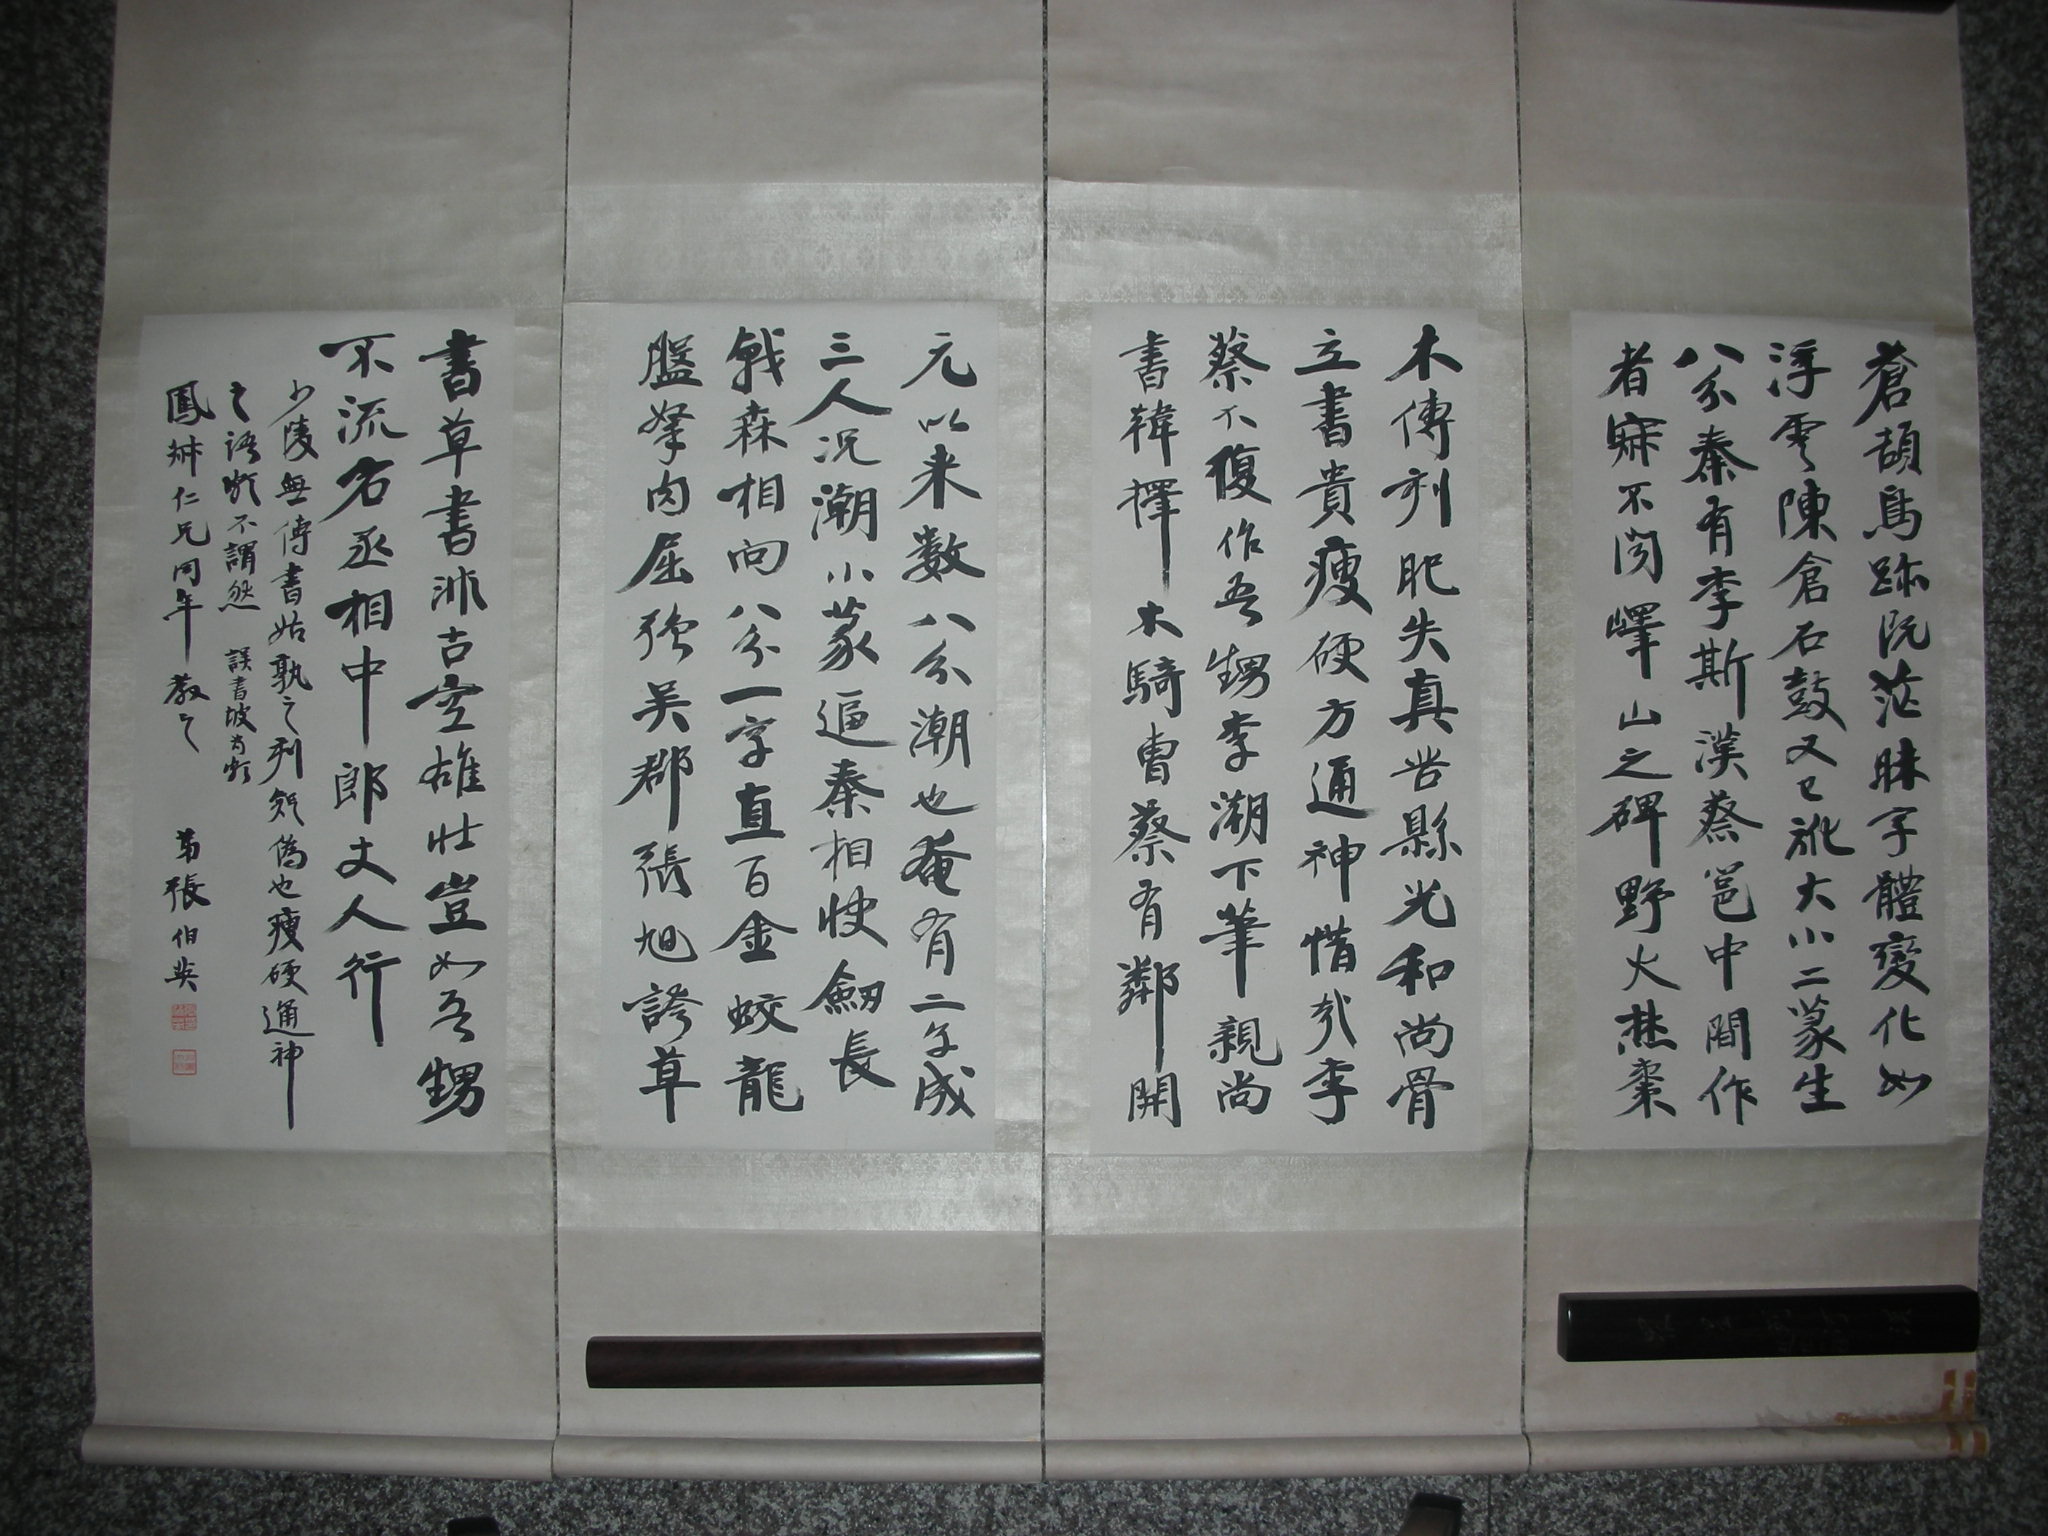 蒼頡鳥跡既茫昧字體變化如
浮雲陳倉石鼓又已訛大小二篆生
八分秦有李斯漢蔡邕中間作
者寂不聞嶧山之碑野火焚棗
木傳刻肥失真苦縣光和尚骨
立書貴瘦硬方通神惜哉李
蔡不復作吾甥李潮下筆親尚
書韓擇木騎曹蔡有鄰開
元以來數八分潮也奄有二子成
三人況潮小篆逼秦相快劍長
戟森相向八分一字直百金蛟龍
盤拏肉屈強吳郡張旭誇草
書草書非古空雄壯豈如吾甥
不流名丞相中郎丈人行
少陵無傳書姑孰之列知偽也瘦硬通神
之語坡不謂然 誤書坡為
鳳 仁兄同年 教之 弟張伯英